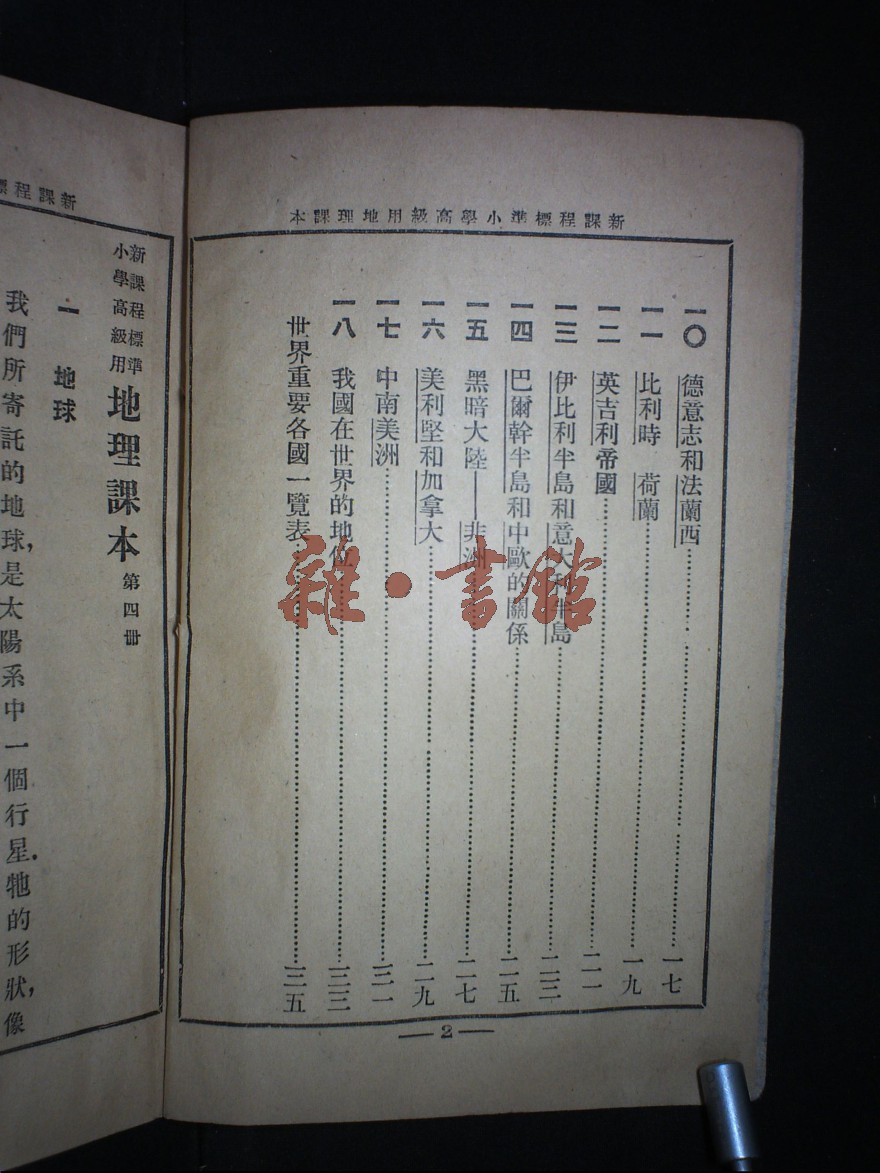 新課程標準小學高級用地理課本
一〇 德意志和法蘭西……一七
一一 比利時 荷蘭……一九
一二 英吉利帝國……二一
一三 伊比利半島和意大利半島……二三
一四 巴爾幹半島和中歐的關係……二五
一五 黑暗大陸——非洲……二七
一六 美利堅和加拿大……二九
一七 中南美洲……三一
一八 我國在世界的地位……三三
世界重要各國一覽表……三五
—2—
雜·書館
新課程標
新課程標準
小學高級用
地理課本 第四冊
一 地球
我們所寄託的地球,是太陽系中一個行星.牠的形狀,像